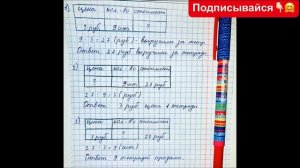 Подписывайся 👇😊
1)
Цена Кол-во Стоимость
3 руб. 9 шт. ?
9 · 3 = 27 (руб.) выручили за тетр.
Ответ: 27 руб выручили за тетради.
2)
Цена Кол-во Стоимость
? 9 шт 27 руб
27 : 9 = 3 (руб)
Ответ: 3 руб. цена 1 тетради.
3)
Цена Кол-во Стоимость
3 руб. ? 27 руб
27 : 3 = 9 (шт)
Ответ: 9 тетрадей продали.